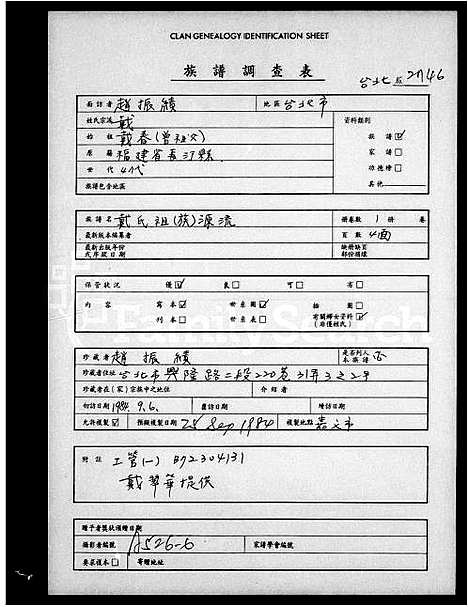 CLAN GENEALOGY IDENTIFICATION SHEET
族譜調查表
台北 2746
面訪者 趙振績 地區 台北市
姓氏宗派 戴 資料類別
始祖 戴春(曾祖父) 族譜☑
原籍 福建省長汀縣 家譜□
世代 4代 功德榜□
族譜包含地區 其他
族譜名 戴氏祖(族)源流 冊卷數 1 冊 卷
最新版本編纂者 頁數 4面
最新出版年份或序跋日期 缺冊缺頁部份損壞
保管狀況 優☑ 良□ 可□ 有□
內容 寫本☑ 世系圖☑ 插圖□
刊本□ 世系表□ 有關婦女資料☑(非僅姓氏)
珍藏者 趙振績 是否列入本族譜 否
珍藏者住址 台北市興隆路二段220巷31弄3之2号
珍藏者在(家)宗族中之地位 介紹者
初訪日期 1984.9.6. 重訪日期 續訪日期
允許複製☑ 預擬複製日期 25 Sep 1984 複製地點 嘉文市
附註 工管(一) B72304131
戴翠華提供
贈予者獎狀頒贈日期
攝影者編號 A526-6 家譜學會編號
要求複本□ 寄贈地址
FamilySearch